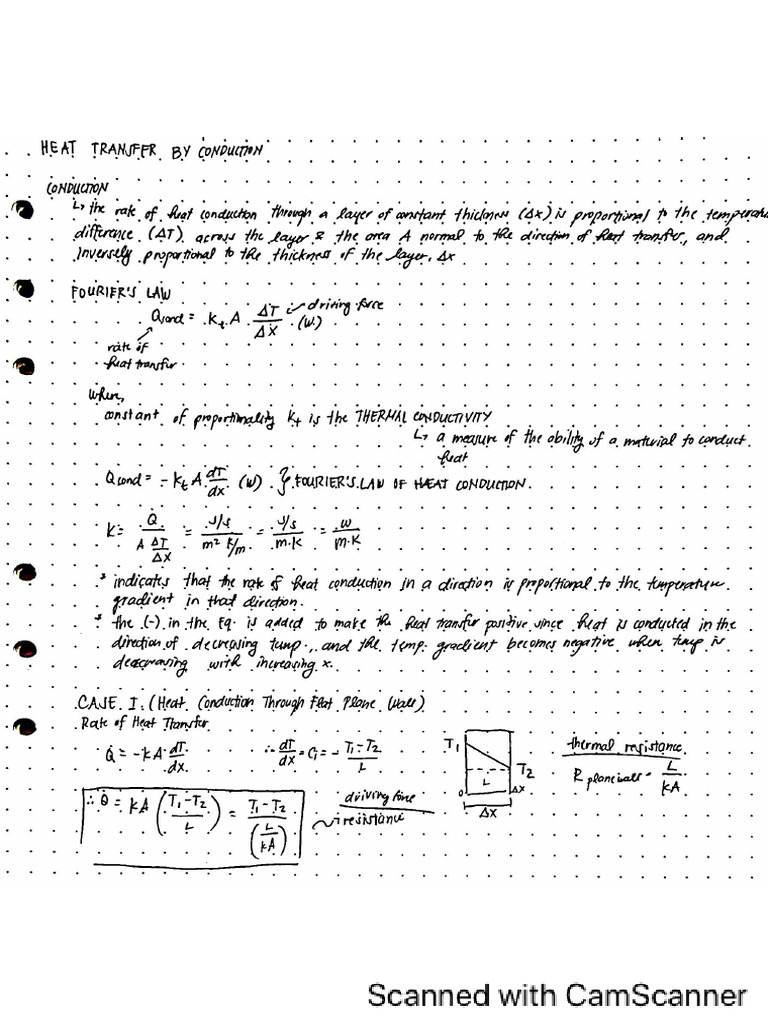 HEAT TRANSFER BY CONDUCTION
CONDUCTION
↳ the rate of heat conduction through a layer of constant thickness (Δx) is proportional to the temperatu
difference (ΔT) across the layer & the area A normal to the direction of heat transfer, and
inversely proportional to the thickness of the layer, Δx
FOURIER'S LAW
Qcond = Kt A ΔT/ΔX (W)
driving force
rate of
heat transfer
when,
constant of proportionality kt is the THERMAL CONDUCTIVITY
↳ a measure of the ability of a material to conduct
heat
Qcond = -Kt A dT/dx (W) } FOURIER'S LAW OF HEAT CONDUCTION
K = Q / (A ΔT/ΔX) = J/s / (m² K/m) = J/s / m·K = W / m·K
* indicates that the rate of heat conduction in a direction is proportional to the temperature
gradient in that direction.
* the (-) in the Eq. is added to make the heat transfer positive since heat is conducted in the
direction of decreasing temp., and the temp. gradient becomes negative when temp is
decreasing with increasing x.
CASE I. (Heat Conduction Through Flat Plane (Wall)
Rate of Heat Transfer
Q̇ = -KA dT/dx
∴ dT/dx = C₁ = - (T₁-T₂)/L
T₁
T₂
L
0
Δx
ΔX
thermal resistance
R plane wall = L/KA
∴ Q̇ = KA ((T₁-T₂)/L) = (T₁-T₂)/(L/KA)
driving force
resistance
Scanned with CamScanner